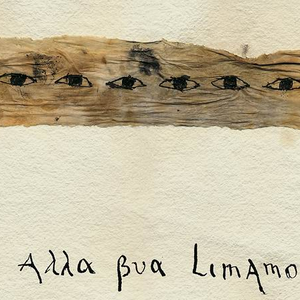 Αλλα βυα LιmAmo